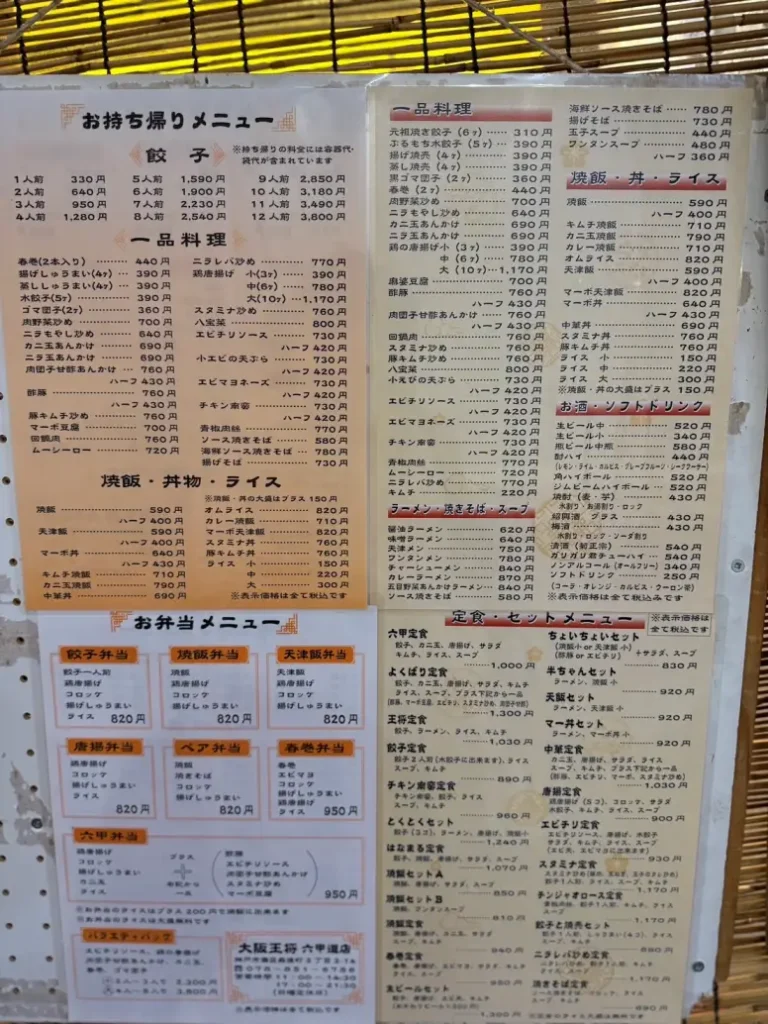 お持ち帰りメニュー
餃子
※持ち帰りの料金には容器代・
袋代が含まれています
1人前 330円 5人前 1,590円 9人前 2,850円
2人前 640円 6人前 1,900円 10人前 3,180円
3人前 950円 7人前 2,230円 11人前 3,490円
4人前 1,280円 8人前 2,540円 12人前 3,800円
一品料理
春巻(2本入り) 440円
揚げしゅうまい(4ヶ) 390円
蒸ししゅうまい(4ヶ) 390円
水餃子(5ヶ) 390円
ゴマ団子(2ヶ) 360円
肉野菜炒め 700円
ニラもやし炒め 640円
カニ玉あんかけ 690円
ニラ玉あんかけ 690円
肉団子甘酢あんかけ 760円
ハーフ 430円
酢豚 760円
ハーフ 430円
豚キムチ炒め 760円
マーボ豆腐 700円
回鍋肉 760円
ムーシーロー 720円
ニラレバ炒め 770円
鶏唐揚げ 小(3ヶ) 390円
中(6ヶ) 780円
大(10ヶ) 1,170円
スタミナ炒め 760円
八宝菜 800円
エビチリソース 730円
ハーフ 420円
小エビの天ぷら 730円
ハーフ 420円
エビマヨネーズ 730円
ハーフ 420円
チキン南蛮 730円
ハーフ 420円
青椒肉絲 770円
ソース焼きそば 580円
海鮮ソース焼きそば 780円
揚げそば 730円
焼飯・丼物・ライス
※焼飯・丼の大盛はプラス150円
焼飯 590円
ハーフ 400円
天津飯 590円
ハーフ 400円
マーボ丼 640円
ハーフ 430円
キムチ焼飯 710円
カニ玉焼飯 790円
中華丼 690円
オムライス 820円
カレー焼飯 710円
マーボ天津飯 820円
スタミナ丼 760円
豚キムチ丼 760円
ライス 小 150円
中 220円
大 300円
※表示価格は全て税込です
お弁当メニュー
餃子弁当
餃子一人前
鶏唐揚げ
コロッケ
揚げしゅうまい
ライス 820円
焼飯弁当
焼飯
鶏唐揚げ
コロッケ
揚げしゅうまい
820円
天津飯弁当
天津飯
鶏唐揚げ
コロッケ
揚げしゅうまい
820円
唐揚弁当
鶏唐揚げ
コロッケ
揚げしゅうまい
ライス
820円
ペア弁当
焼飯
焼きそば
コロッケ
揚げしゅうまい
900円
春巻弁当
春巻
エビマヨ
コロッケ
揚げしゅうまい
鶏唐揚げ
ライス 950円
六甲弁当
鶏唐揚げ
コロッケ
揚げしゅうまい
カニ玉
ライス
プラス
+
右記から
一品
酢豚
エビチリソース
肉団子甘酢あんかけ
スタミナ炒め
マーボ豆腐
950円
※お弁当のライスはプラス200円で焼飯に出来ます
※お弁当のライスは大盛無料です
バラエティパック
エビチリソース、鶏の唐揚げ
肉団子甘酢あんかけ、カニ玉、
春巻、ゴマ団子
2人〜3人 2,300円
4人〜5人
大阪王将 六甲道店
営業時間 11:00〜14:30
17:00〜21:30
※表示価格は全て税込です
一品料理
元祖焼き餃子(6ヶ) 310円
ぷるもち水餃子(5ヶ) 390円
揚げ焼売(4ヶ) 390円
蒸し焼売(4ヶ) 390円
黒ゴマ団子(2ヶ) 360円
春巻(2ヶ) 440円
肉野菜炒め 700円
ニラもやし炒め 640円
カニ玉あんかけ 690円
ニラ玉あんかけ 690円
鶏の唐揚げ小(3ヶ) 390円
中(6ヶ) 780円
大(10ヶ) 1,170円
麻婆豆腐 700円
酢豚 760円
ハーフ 430円
肉団子甘酢あんかけ 760円
ハーフ 430円
回鍋肉 760円
スタミナ炒め 760円
豚キムチ炒め 760円
八宝菜 800円
小えびの天ぷら 730円
ハーフ 420円
エビチリソース 730円
ハーフ 420円
エビマヨネーズ 730円
ハーフ 420円
チキン南蛮 730円
ハーフ 420円
青椒肉絲 770円
ムーシーロー 720円
ニラレバ炒め 770円
キムチ 220円
ラーメン・焼きそば・スープ
醤油ラーメン 620円
味噌ラーメン 640円
天津メン 750円
ワンタンメン 780円
チャーシューメン 840円
カレーラーメン 870円
五目野菜あんかけラーメン 840円
ソース焼きそば 580円
海鮮ソース焼きそば 780円
揚げそば 730円
玉子スープ 440円
ワンタンスープ 480円
ハーフ 360円
焼飯・丼・ライス
焼飯 590円
ハーフ 400円
キムチ焼飯 710円
カニ玉焼飯 790円
カレー焼飯 710円
オムライス 820円
天津飯 590円
ハーフ 400円
マーボ天津飯 820円
マーボ丼 640円
ハーフ 430円
中華丼 690円
スタミナ丼 760円
豚キムチ丼 760円
ライス 小 150円
ライス 中 220円
ライス 大 300円
※焼飯・丼の大盛はプラス150円
お酒・ソフトドリンク
生ビール中 520円
生ビール小 340円
瓶ビール中瓶 580円
酎ハイ 440円
(レモン・ライム・カルピス・グレープフルーツ・シークァーサー)
角ハイボール 520円
ジムビームハイボール 520円
焼酎(麦・芋) 430円
水割り・お湯割り・ロック
紹興酒 グラス 430円
梅酒 430円
水割り・ロック・ソーダ割り
清酒(菊正宗) 540円
ガリガリ君チューハイ 540円
ノンアルコール(オールフリー) 340円
ソフトドリンク 250円
(コーラ・オレンジ・カルピス・ウーロン茶)
※表示価格は全て税込みです
定食・セットメニュー
※表示価格は
全て税込です
六甲定食
餃子、カニ玉、唐揚げ、サラダ
キムチ、ライス、スープ
1,000円
よくばり定食
餃子、カニ玉、唐揚げ、サラダ、キムチ
ライス、スープ、プラス下記から一品
(酢豚、マーボ豆腐、エビチリ、スタミナ炒め、肉団子甘酢)
1,300円
王将定食
餃子、ラーメン、ライス、キムチ
1,030円
餃子定食
餃子2人前(水餃子に出来ます)、ライス
スープ、キムチ
890円
チキン南蛮定食
チキン南蛮、餃子、ライス
スープ、キムチ
960円
とくとくセット
餃子(3コ)、ラーメン、唐揚げ、焼飯小
1,240円
はなまる定食
餃子、焼飯、唐揚げ、サラダ、スープ
1,070円
焼飯セットA
焼飯、唐揚げ、サラダ、スープ
850円
焼飯セットB
焼飯、ワンタンスープ
810円
焼飯定食
焼飯、餃子、スープ
940円
春巻定食
春巻、唐揚げ、エビマヨ、サラダ、キムチ
ライス、スープ
950円
生ビールセット
餃子、唐揚げ、エビ天、キムチ
1,300円
ちょいちょいセット
(焼飯小 or 天津飯 小)
(酢豚 or エビチリ)
+サラダ、スープ
830円
半ちゃんセット
ラーメン、焼飯 小
920円
天飯セット
ラーメン、天津飯 小
920円
マー丼セット
ラーメン、マーボ丼 小
920円
中華定食
カニ玉、唐揚げ、サラダ、ライス
スープ、キムチ、プラス下記から一品
(酢豚、エビチリ、マーボ、スタミナ炒め)
1,030円
唐揚定食
鶏唐揚げ(5コ)、コロッケ、サラダ
水餃子、キムチ、ライス、スープ
900円
エビチリ定食
エビチリソース、唐揚げ、水餃子
サラダ、キムチ、ライス、スープ
(エビ天、エビマヨに出来ます)
930円
スタミナ定食
餃子1人前、ライス、スープ、キムチ
1,170円
チンジャオロース定食
青椒肉絲、餃子1人前、ライス
スープ、キムチ
1,170円
餃子と焼売セット
餃子1人前、しゅうまい(4コ)、ライス
スープ、キムチ
890円
ニラレバ炒め定食
ニラレバ炒め、餃子1人前、ライス
スープ、キムチ
1,170円
焼きそば定食
ソース焼きそば、餃子、ライス
スープ、キムチ
890円